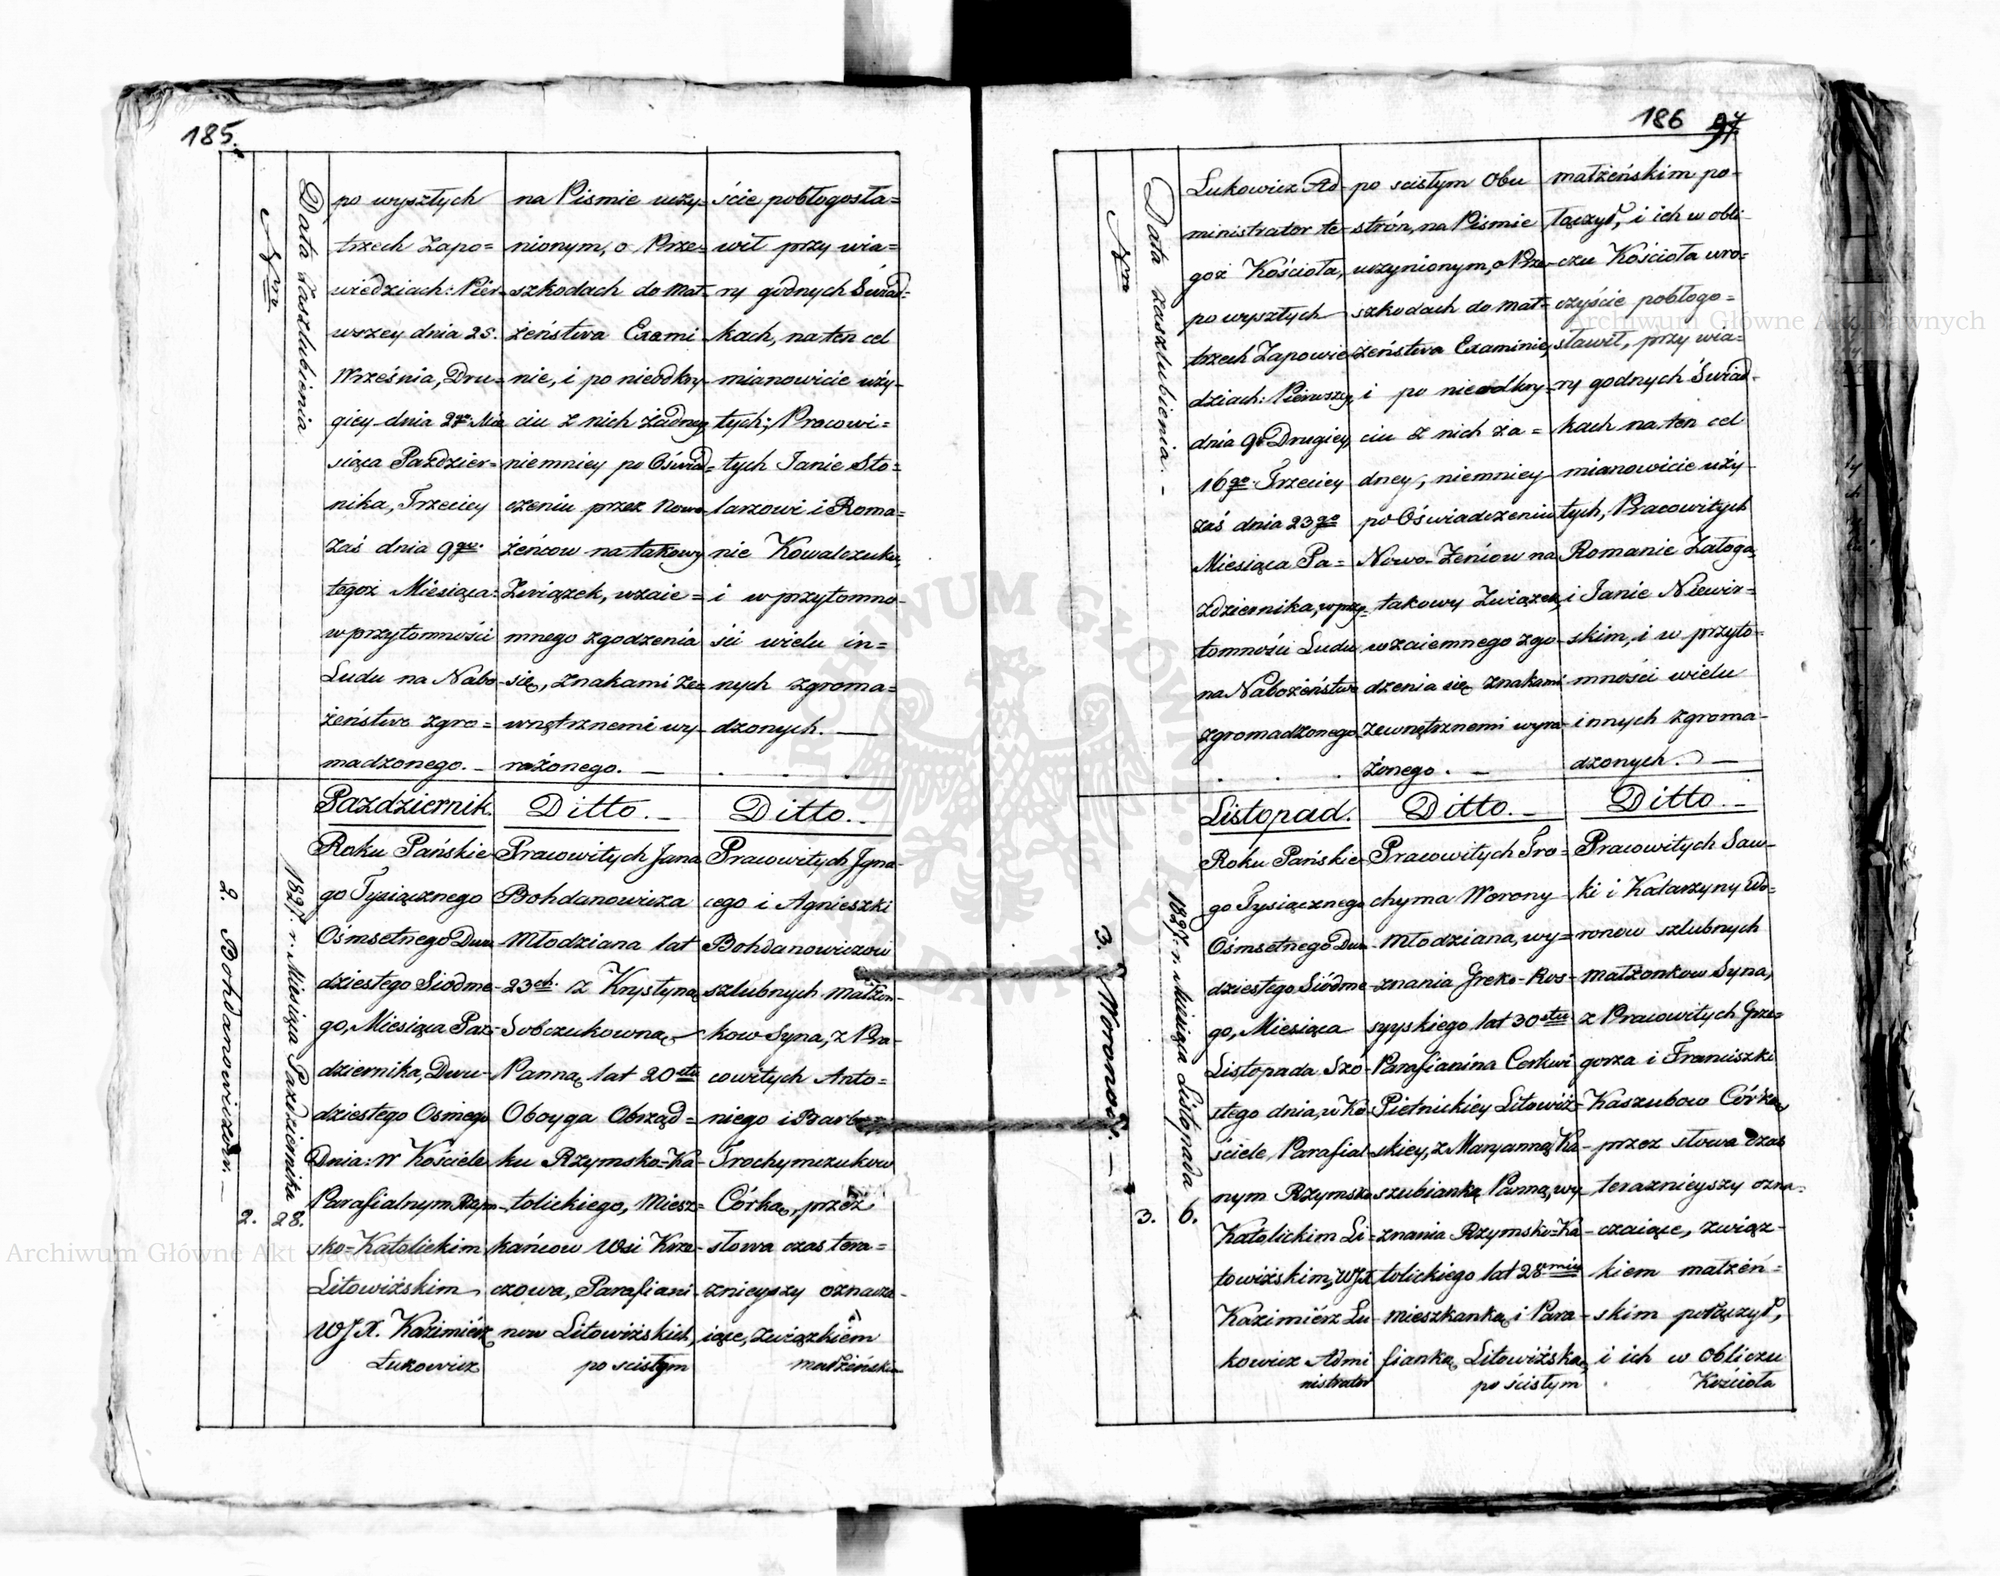 185.
Nro
Data Zaszlubienia
po wyszłych
trzech Zapo=
wiedziach: Pier-
wszey dnia 25.
Września, Dru=
giey dnia 2go Mie
siąca Paździer=
nika, Trzeciey
zaś dnia 9go.
tegoż Miesiąca:
w przytomności
Ludu na Nabo-
żeństwo zgro=
madzonego. –
na Piśmie uczy-
nionym, o Prze-
szkodach do Mał-
żeństwa Exami
nie, i po nieodkry-
ciu z nich żadney
niemniey po Oświad=
czeniu przez Nowo-
żeńcow na takowy
Związek, wzaie=
mnego zgodzenia
się, znakami Ze=
wnętrznemi wy-
rażonego. –
ście pobłogosła=
wił przy wia=
ry godnych Świad-
kach, na ten cel
mianowicie uży-
tych; Pracowi=
tych Janie Sto=
larzowi i Roma=
nie Kowalczuku,
i w przytomno-
ści wielu in=
nych zgroma=
dzonych. –
2. Bohdanowiczow. –
2.
1827. r. Miesiąca Października
28.
Pazdziernik.
Roku Pańskie
go Tysiącznego
Ośmsetnego Dwu
dziestego Siódme
go, Miesiąca Paź-
dziernika, Dwu-
dziestego Osmego
Dnia: w Kościele
Parafialnym Rzym
sko=Katolickim
Litowiżskim
WJX. Kazimierz
Łukowicz
Ditto. –
Pracowitych Jana
Bohdanowicza
Młodziana lat
23ch. z Krystyną
Sobczukowną,
Panną, lat 20stu
Oboyga Obrząd=
ku Rzymsko=Ka-
tolickiego, Miesz=
kańcow Wsi Krze-
czowa, Parafiani
now Litowiżskich,
po scisłym
Ditto. –
Pracowitych Jgna-
cego i Agnieszki
Bohdanowiczow
szlubnych Małżon-
kow Syna, z Pra-
cowitych Anto=
niego i Barbary
Trochymczukow
Córką, przez
słowa czas tera=
znieyszy oznacza-
iące, związkiem
małżeńskim
186
97
Nro
Data zaszlubienia. –
Lukowicz Ad-
ministrator te-
goż Kościoła,
po wyszłych
trzech Zapowie-
dziach: Pierwszey
dnia 9go Drugiey
16go. Trzeciey
zaś dnia 23go
Miesiąca Pa=
ździernika, w przy-
tomności Ludu
na Nabożeństwo
zgromadzonego
po scisłym Obu
strón, na Piśmie
uczynionym, o Prze-
szkodach do Mał=
żeństwa Examinie,
i po nieodkry-
ciu z nich ża=
dney, niemniey
po Oświadczeniu
Nowo-Żeńcow na
takowy Związek,
wzaiemnego zgo-
dzenia się znakami
zewnętrznemi wyra-
żonego. –
małżeńskim po-
łączył, i ich w obli-
czu Kościoła uro-
czyście pobłogo=
sławił, przy wia-
ry godnych Świad-
kach na ten cel
mianowicie uży-
tych, Pracowitych
Romanie Załoga,
i Janie Niewir=
skim, i w przyto-
mności wielu
innych zgroma-
dzonych. –
3. Woronow. –
3.
1827. r. Miesiąca Listopada
6.
Listopad.
Roku Pańskie
go Tysiącznego
Ośmsetnego Dwu
dziestego Siódme
go, Miesiąca
Listopada Szó-
stego dnia, w Ko
ściele Parafial
nym Rzymsko
Katolickim Li-
towiżskim, WJX
Kazimiérz Lu
kowicz Admi
nistrator
Ditto. –
Pracowitych Tro=
chyma Worony
Młodziana, wy=
znania Greko-Ros=
syyskiego lat 30stu
Parafianina Cerkwi
Pietnickiey Litowiż=
skiey, z Maryanną Ka-
szubianką Panną, wy
znania Rzymsko=Ka-
tolickiego lat 28miu
mieszkanką i Para-
fianką Litowiżską,
po ścisłym
Ditto. –
Pracowitych Saw-
ki i Katarzyny Wo-
ronow szlubnych
małżonkow Syna,
z Pracowitych Grze-
gorza i Franciszki
Kaszubow Córką,
przez słowa czas
teraznieyszy ozna-
czaiące, związ-
kiem małżeń=
skim połączył,
i ich w obliczu
Kościoła
ARCHIWUM GŁÓWNE AKT DAWNYCH
Archiwum Główne Akt Dawnych
Archiwum Główne Akt Dawnych